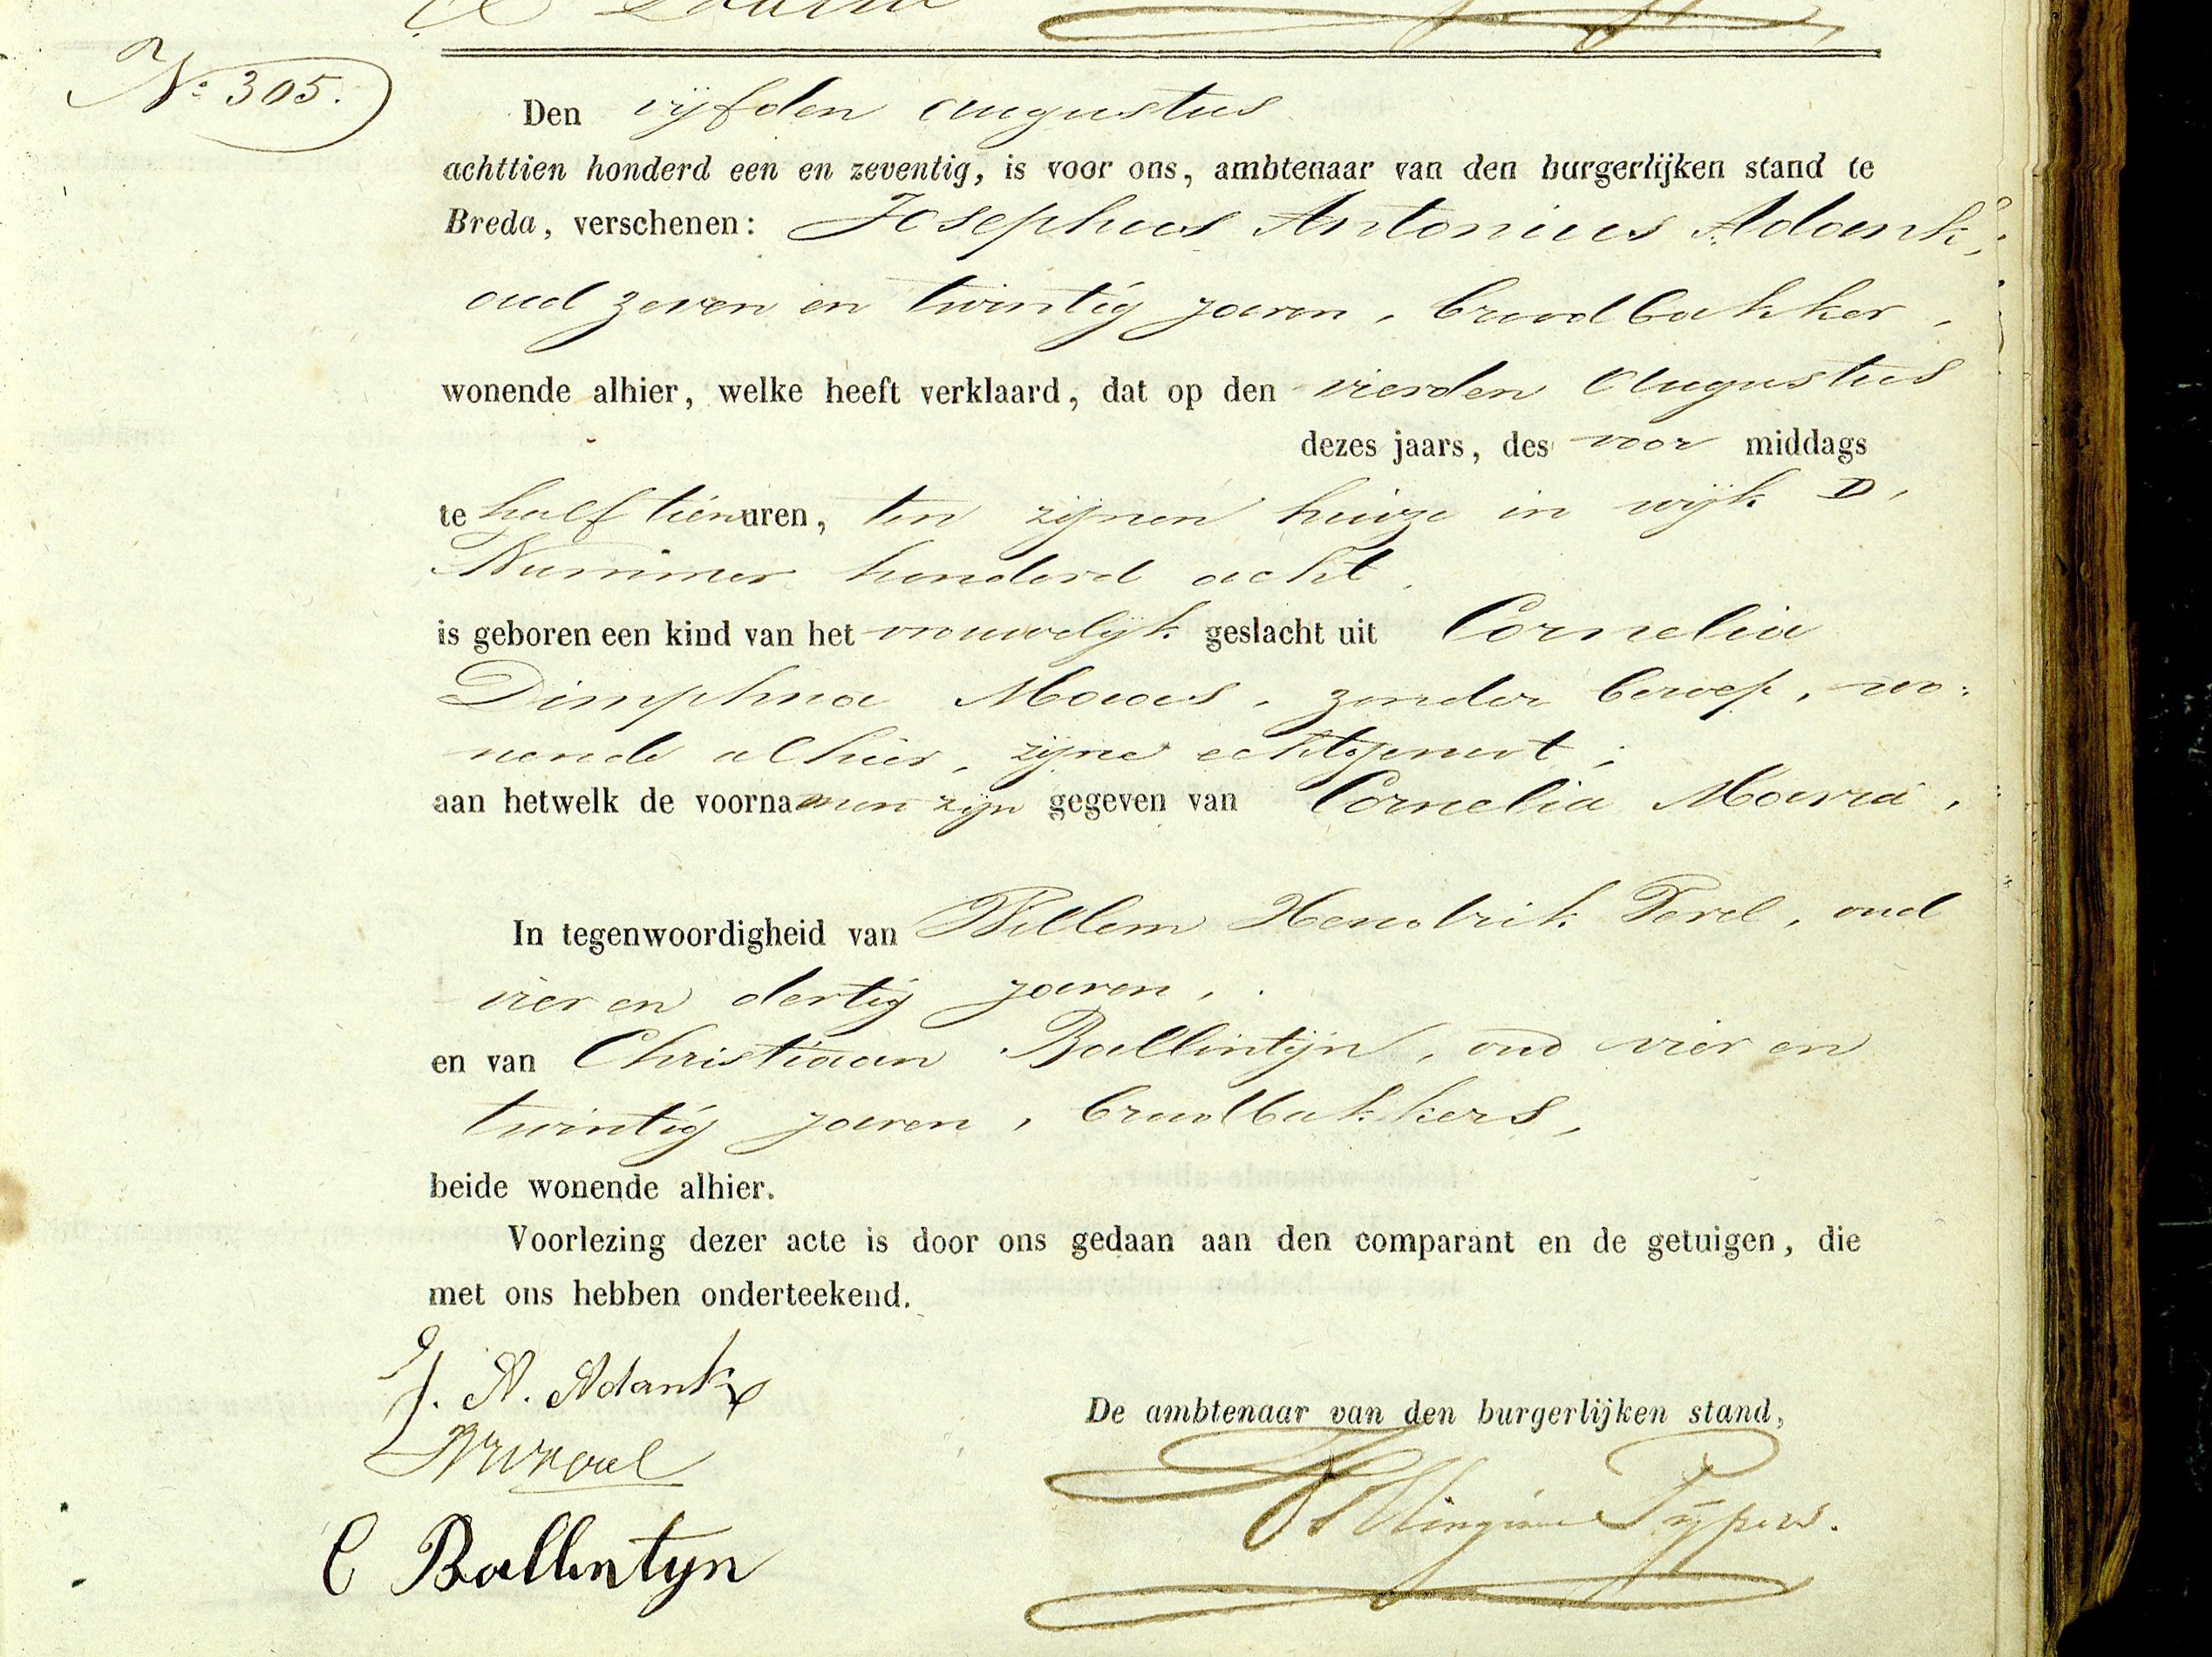 No 305.
Den vijfden augustus
achttien honderd een en zeventig, is voor ons, ambtenaar van den burgerlijken stand te
Breda, verschenen: Josephus Antonius Adank,
oud zeven en twintig jaren, broodbakker,
wonende alhier, welke heeft verklaard, dat op den vierden Augustus
dezes jaars, des voor middags
te half tien uren, ten zijnen huize in wijk D,
Nummer honderd acht,
is geboren een kind van het vrouwelijk geslacht uit Cornelia
Dimphna Maas, zonder beroep, wo:
nende alhier, zijne echtgenoot;
aan hetwelk de voornamen zijn gegeven van Cornelia Maria,
In tegenwoordigheid van Willem Hendrik Perel, oud
vier en dertig jaren,
en van Christiaan Ballintijn, oud vier en
twintig jaren, broodbakkers,
beide wonende alhier.
Voorlezing dezer acte is door ons gedaan aan den comparant en de getuigen, die
met ons hebben onderteekend.
J. A. Adank
De ambtenaar van den burgerlijken stand,
Pypers.
C Ballintyn